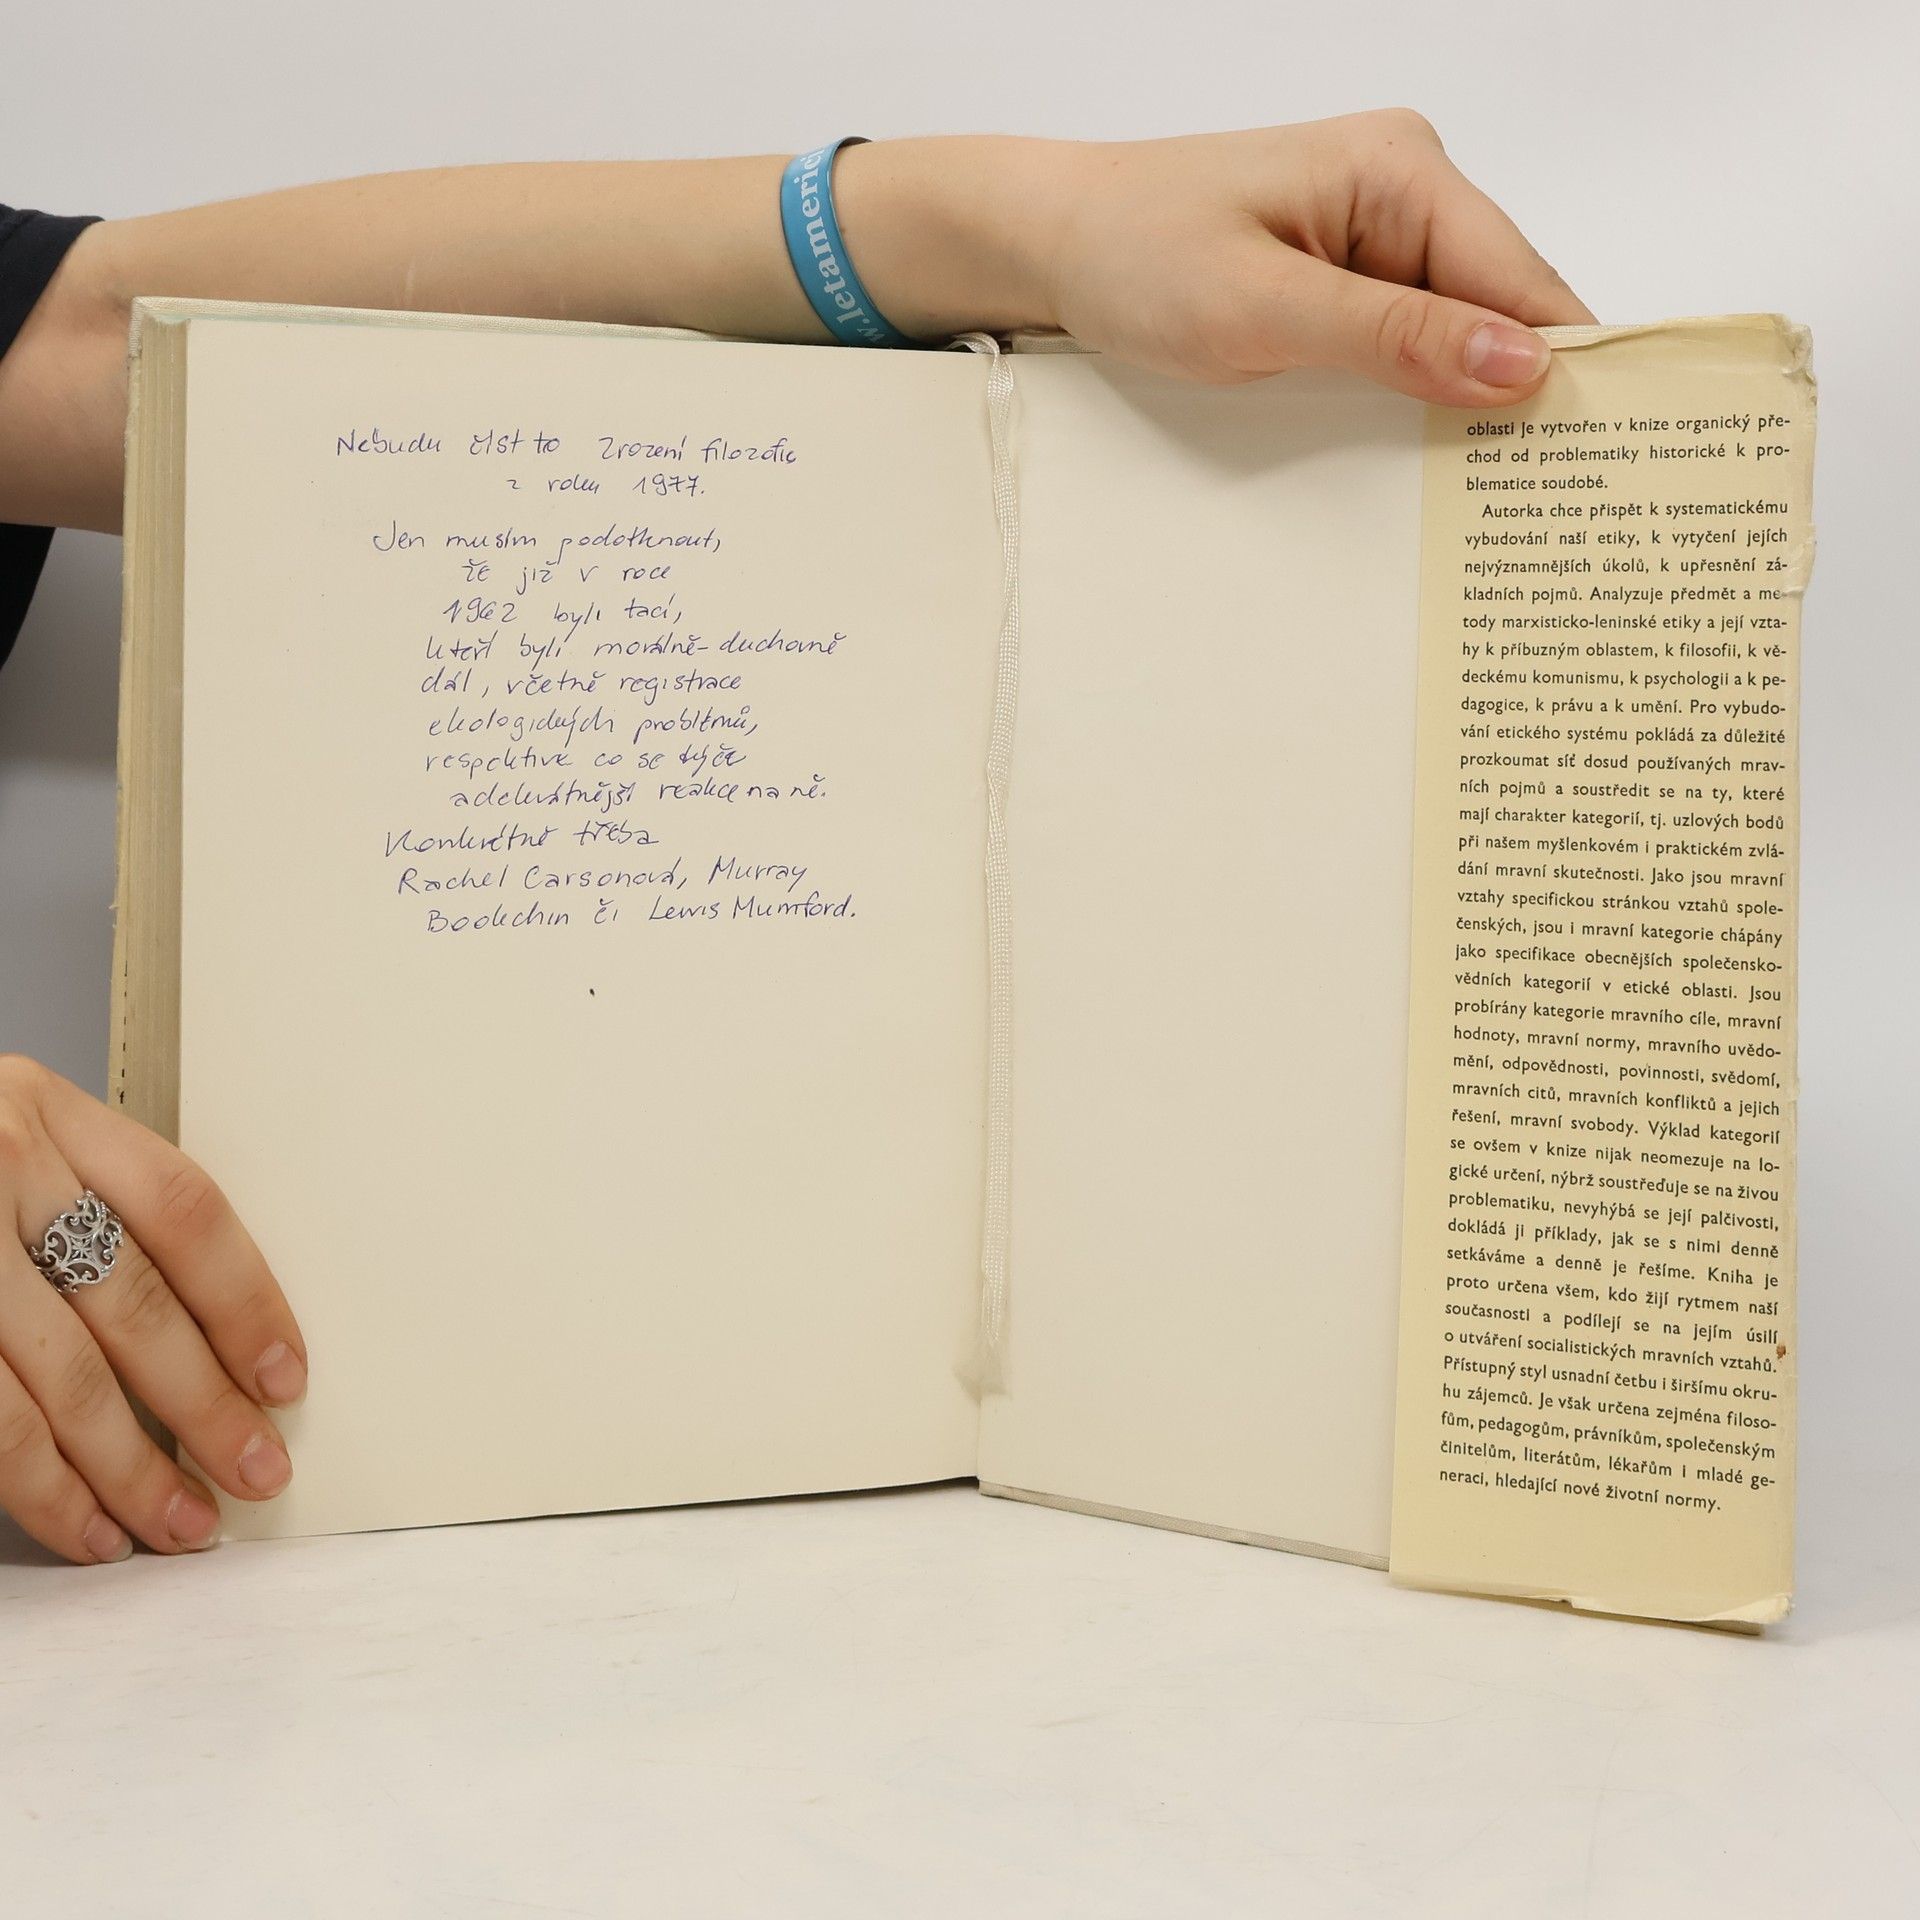 www.letamerici
Nebudu číst to Zrození filozofie
z roku 1977.
Jen musím podotknout,
že již v roce
1962 byli tací,
kteří byli morálně-duchovně
dál, včetně registrace
ekologických problémů,
respektive co se týče
adekvátnější reakce na ně.
Konkrétně třeba
Rachel Carsonová, Murray
Bookchin či Lewis Mumford.
oblasti je vytvořen v knize organický pře-
chod od problematiky historické k pro-
blematice soudobé.
Autorka chce přispět k systematickému
vybudování naší etiky, k vytyčení jejích
nejvýznamnějších úkolů, k upřesnění zá-
kladních pojmů. Analyzuje předmět a me-
tody marxisticko-leninské etiky a její vzta-
hy k příbuzným oblastem, k filosofii, k vě-
deckému komunismu, k psychologii a k pe-
dagogice, k právu a k umění. Pro vybudo-
vání etického systému pokládá za důležité
prozkoumat síť dosud používaných mrav-
ních pojmů a soustředit se na ty, které
mají charakter kategorií, tj. uzlových bodů
při našem myšlenkovém i praktickém zvlá-
dání mravní skutečnosti. Jako jsou mravní
vztahy specifickou stránkou vztahů spole-
čenských, jsou i mravní kategorie chápány
jako specifikace obecnějších společensko-
vědních kategorií v etické oblasti. Jsou
probírány kategorie mravního cíle, mravní
hodnoty, mravní normy, mravního uvědo-
mění, odpovědnosti, povinnosti, svědomí,
mravních citů, mravních konfliktů a jejich
řešení, mravní svobody. Výklad kategorií
se ovšem v knize nijak neomezuje na lo-
gické určení, nýbrž soustřeďuje se na živou
problematiku, nevyhýbá se její palčivosti,
dokládá ji příklady, jak se s nimi denně
setkáváme a denně je řešíme. Kniha je
proto určena všem, kdo žijí rytmem naší
současnosti a podílejí se na jejím úsilí
o utváření socialistických mravních vztahů.
Přístupný styl usnadní četbu i širšímu okru-
hu zájemců. Je však určena zejména filoso-
fům, pedagogům, právníkům, společenským
činitelům, literátům, lékařům i mladé ge-
neraci, hledající nové životní normy.